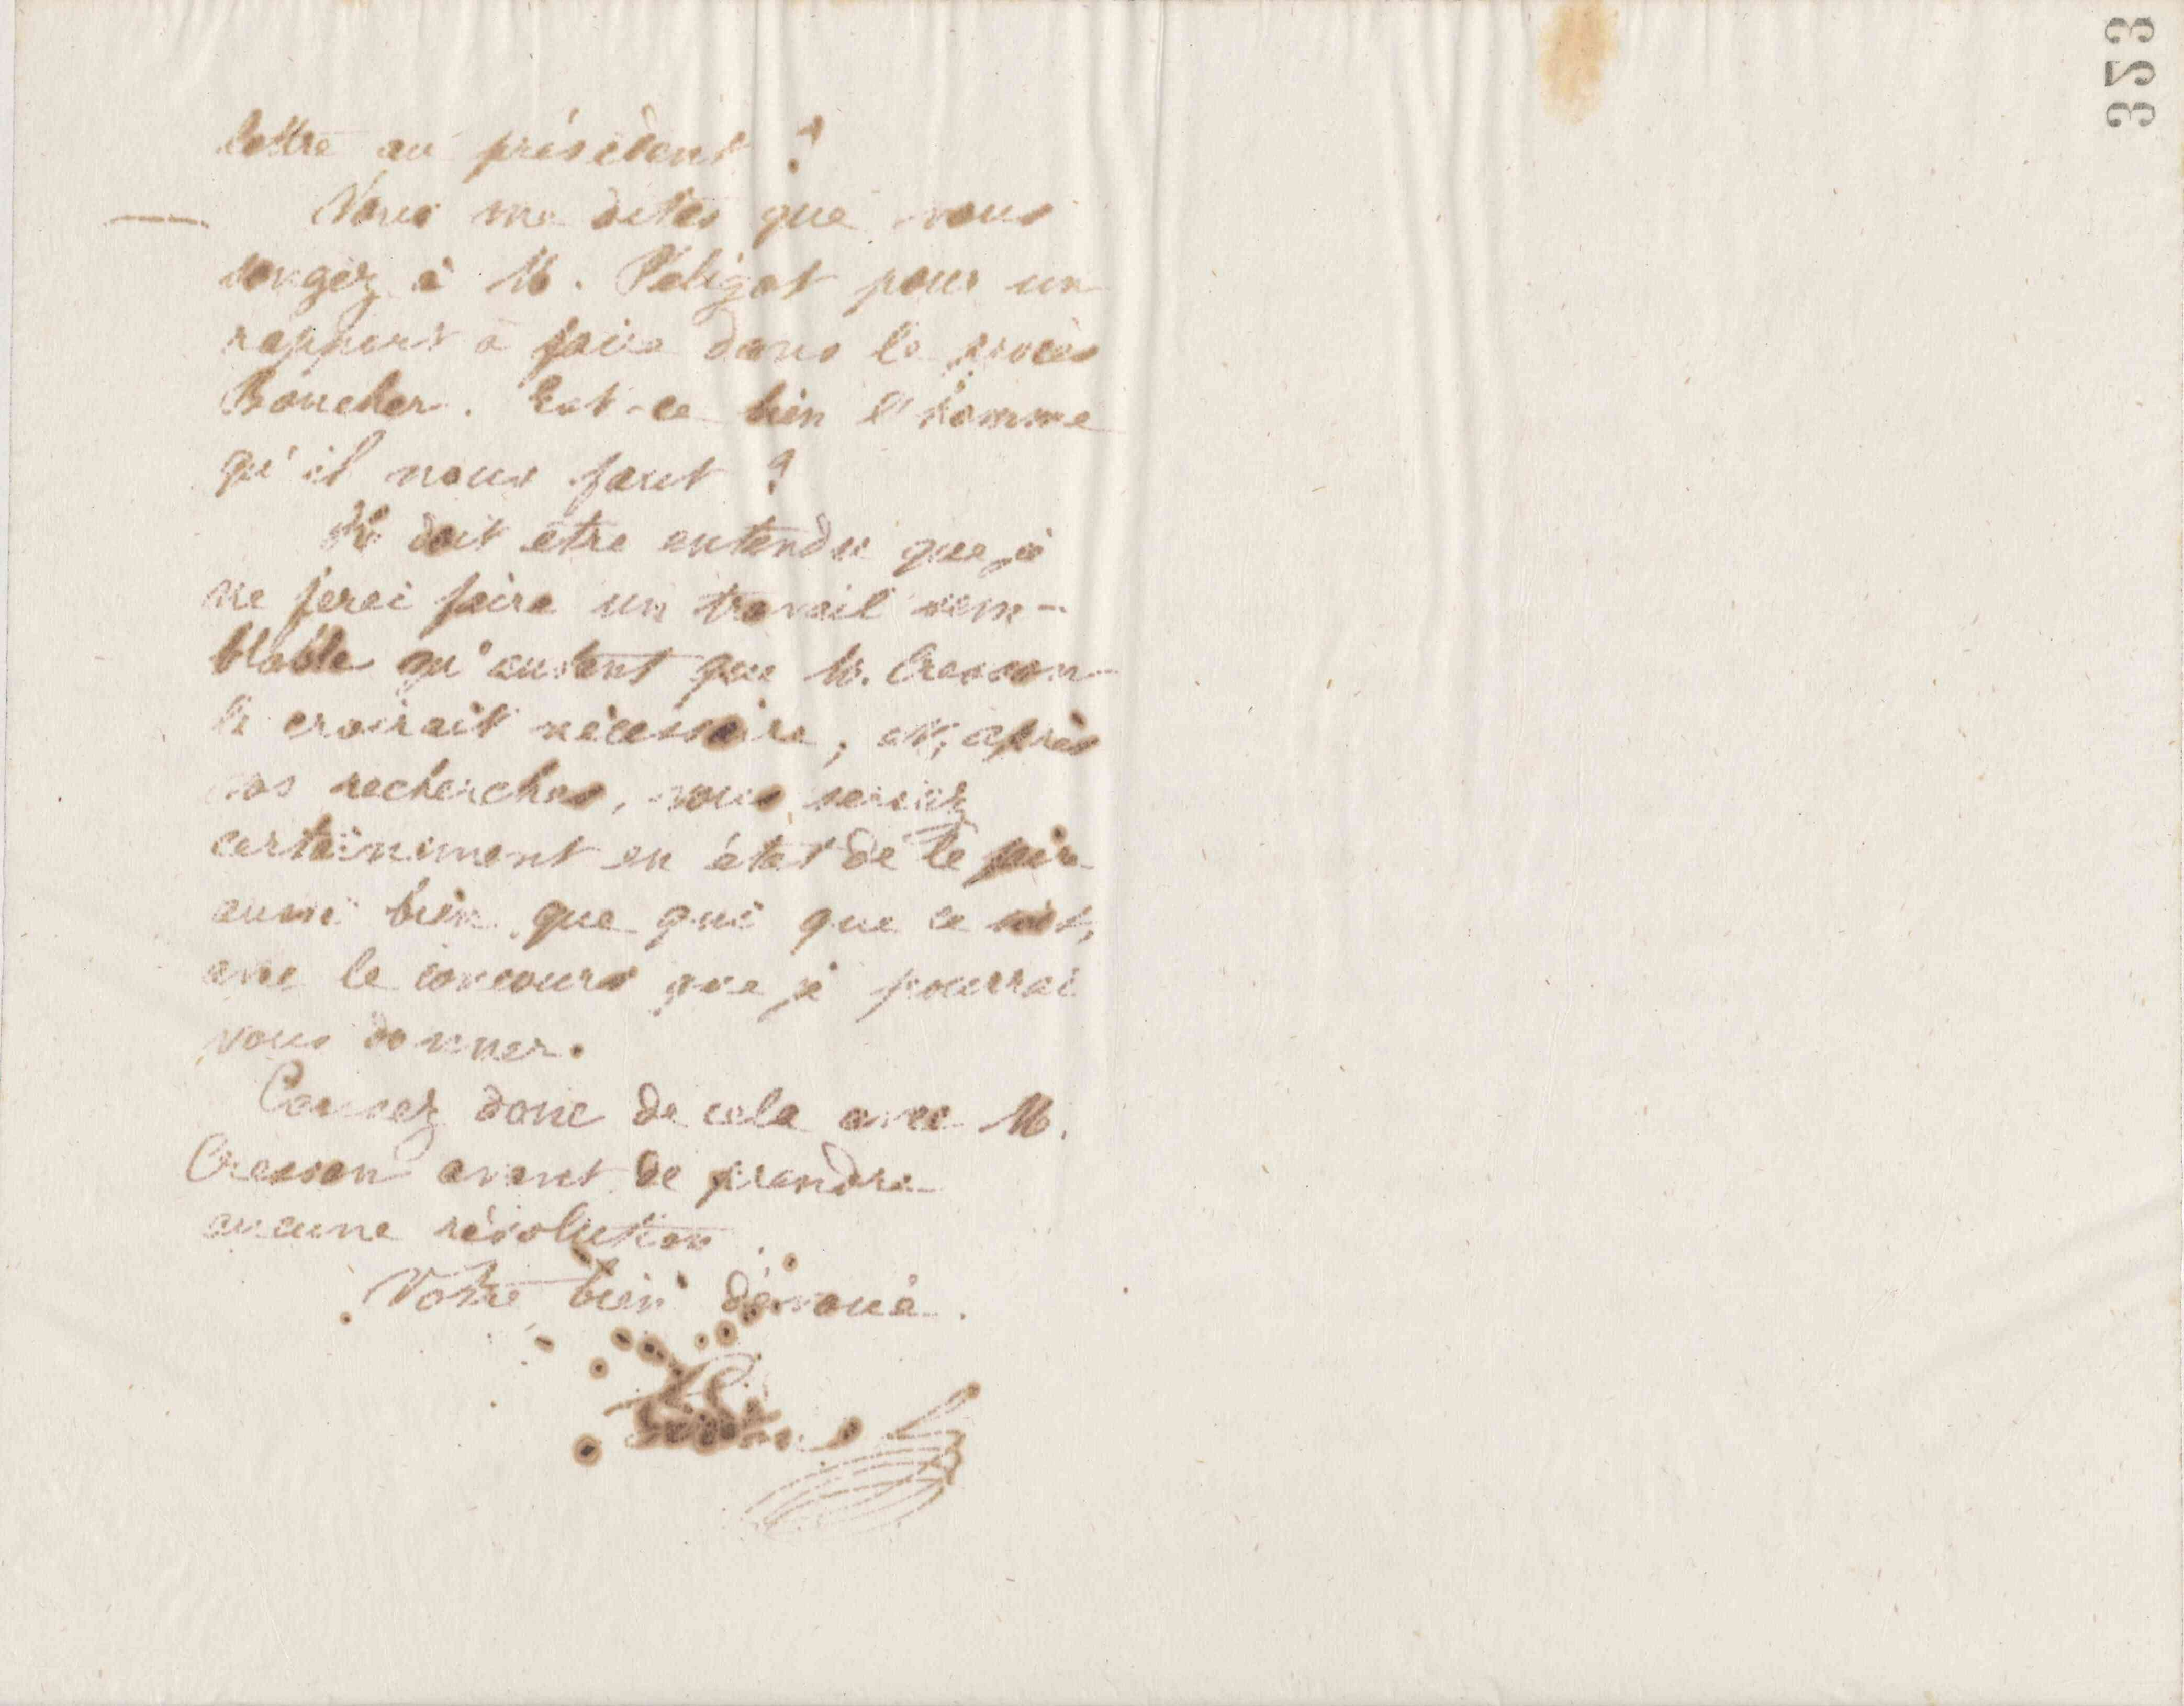 lettre au président ?
Vous me dites que vous
songez à M. Péligot pour un
rapport à faire dans le procès
Boucher. Est-ce bien l'homme
qu'il nous faut ?
Il doit être entendu que je
ne ferai faire un travail sem-
blable qu'autant que M. Cresson
le croirait nécessaire, et, après
vos recherches, vous seriez
certainement en état de le faire
aussi bien que qui que ce soit,
avec le concours que je pourrai
vous donner.
Causez donc de cela avec M.
Cresson avant de prendre
aucune résolution.
Votre bien dévoué.
323